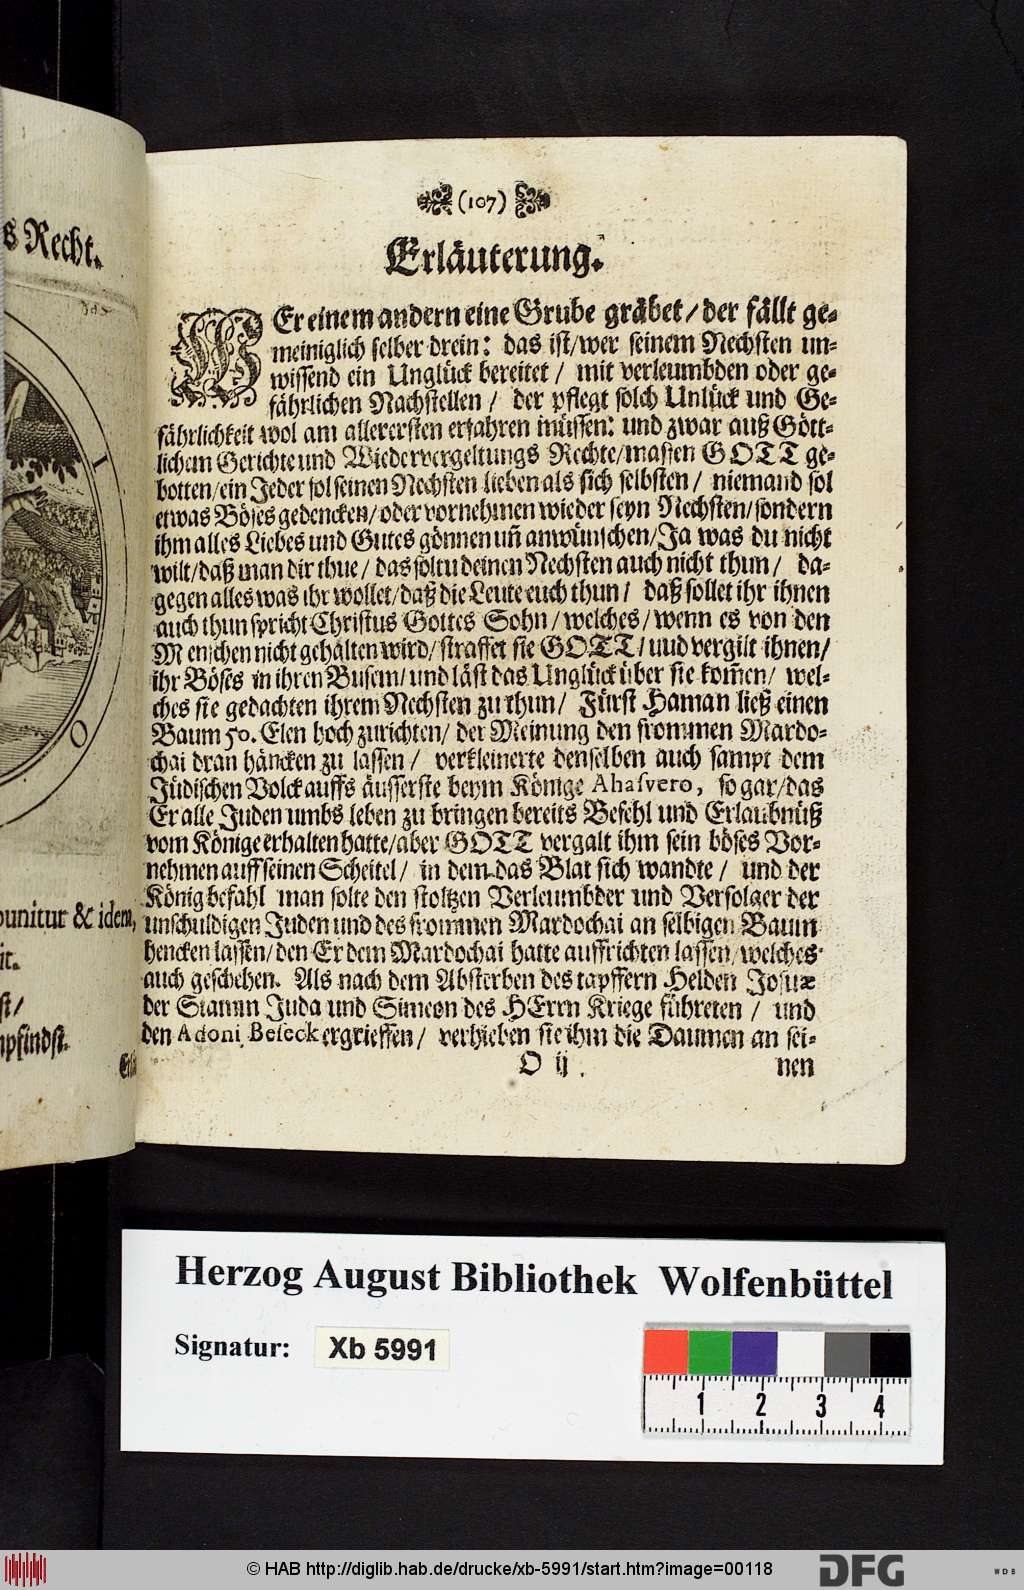 s Recht.
punitur & idem,
it.
st/
mpfindst.
(107)
Erläuterung.
WEr einem andern eine Grube gräbet/der fällt ge-
meiniglich selber drein: das ist/wer seinem Nechsten un-
wissend ein Unglück bereitet/ mit verleumbden oder ge-
fährlichen Nachstellen/ der pflegt solch Unlück und Ge-
fährlichkeit wol am allerersten erfahren müssen: und zwar auß Gött-
lichem Gerichte und Wiedervergeltungs Rechte/massen GOTT ge-
botten/ein Jeder sol seinen Nechsten lieben als sich selbsten/ niemand sol
etwas Böses gedencken/oder vornehmen wieder seyn Nechsten/sondern
ihm alles Liebes und Gutes gönnen uñ anwünschen/Ja was du nicht
wilt/daß man dir thue/das soltu deinen Nechsten auch nicht thun/ da-
gegen alles was ihr wollet/daß die Leute euch thun/ daß sollet ihr ihnen
auch thun spricht Christus Gottes Sohn/welches/wenn es von den
Menschen nicht gehalten wird/straffet sie GOTT/uud vergilt ihnen/
ihr Böses in ihren Busem/und läst das Unglück über sie kom̃en/ wel-
ches sie gedachten ihrem Nechsten zu thun/ Fürst Haman ließ einen
Baum 50. Elen hoch zurichten/der Meinung den frommen Mardo-
chai dran häncken zu lassen/ verkleinerte denselben auch sampt dem
Jüdischen Volck auffs äusserste beym Könige Ahasvero, so gar/das
Er alle Juden umbs leben zu bringen bereits Befehl und Erlaubnüß
vom Könige erhalten hatte/aber GOTT vergalt ihm sein böses Vor-
nehmen auff seinen Scheitel/ in dem das Blat sich wandte/ und der
König befahl man solte den stoltzen Verleumbder und Verfolger der
unschuldigen Juden und des frommen Mardochai an selbigen Baum
hencken lassen/den Er dem Mardochai hatte auffrichten lassen/welches
auch geschehen. Als nach dem Absterben des tapffern Helden Josuæ
der Stamm Juda und Simeon des HErrn Kriege führeten/ und
den Adoni Beseck ergrieffen/ verhieben sie ihm die Daumen an sei-
O ij.
nen
Herzog August Bibliothek Wolfenbüttel
Signatur: Xb 5991
1 2 3 4
© HAB http://diglib.hab.de/drucke/xb-5991/start.htm?image=00118
DFG
WDB